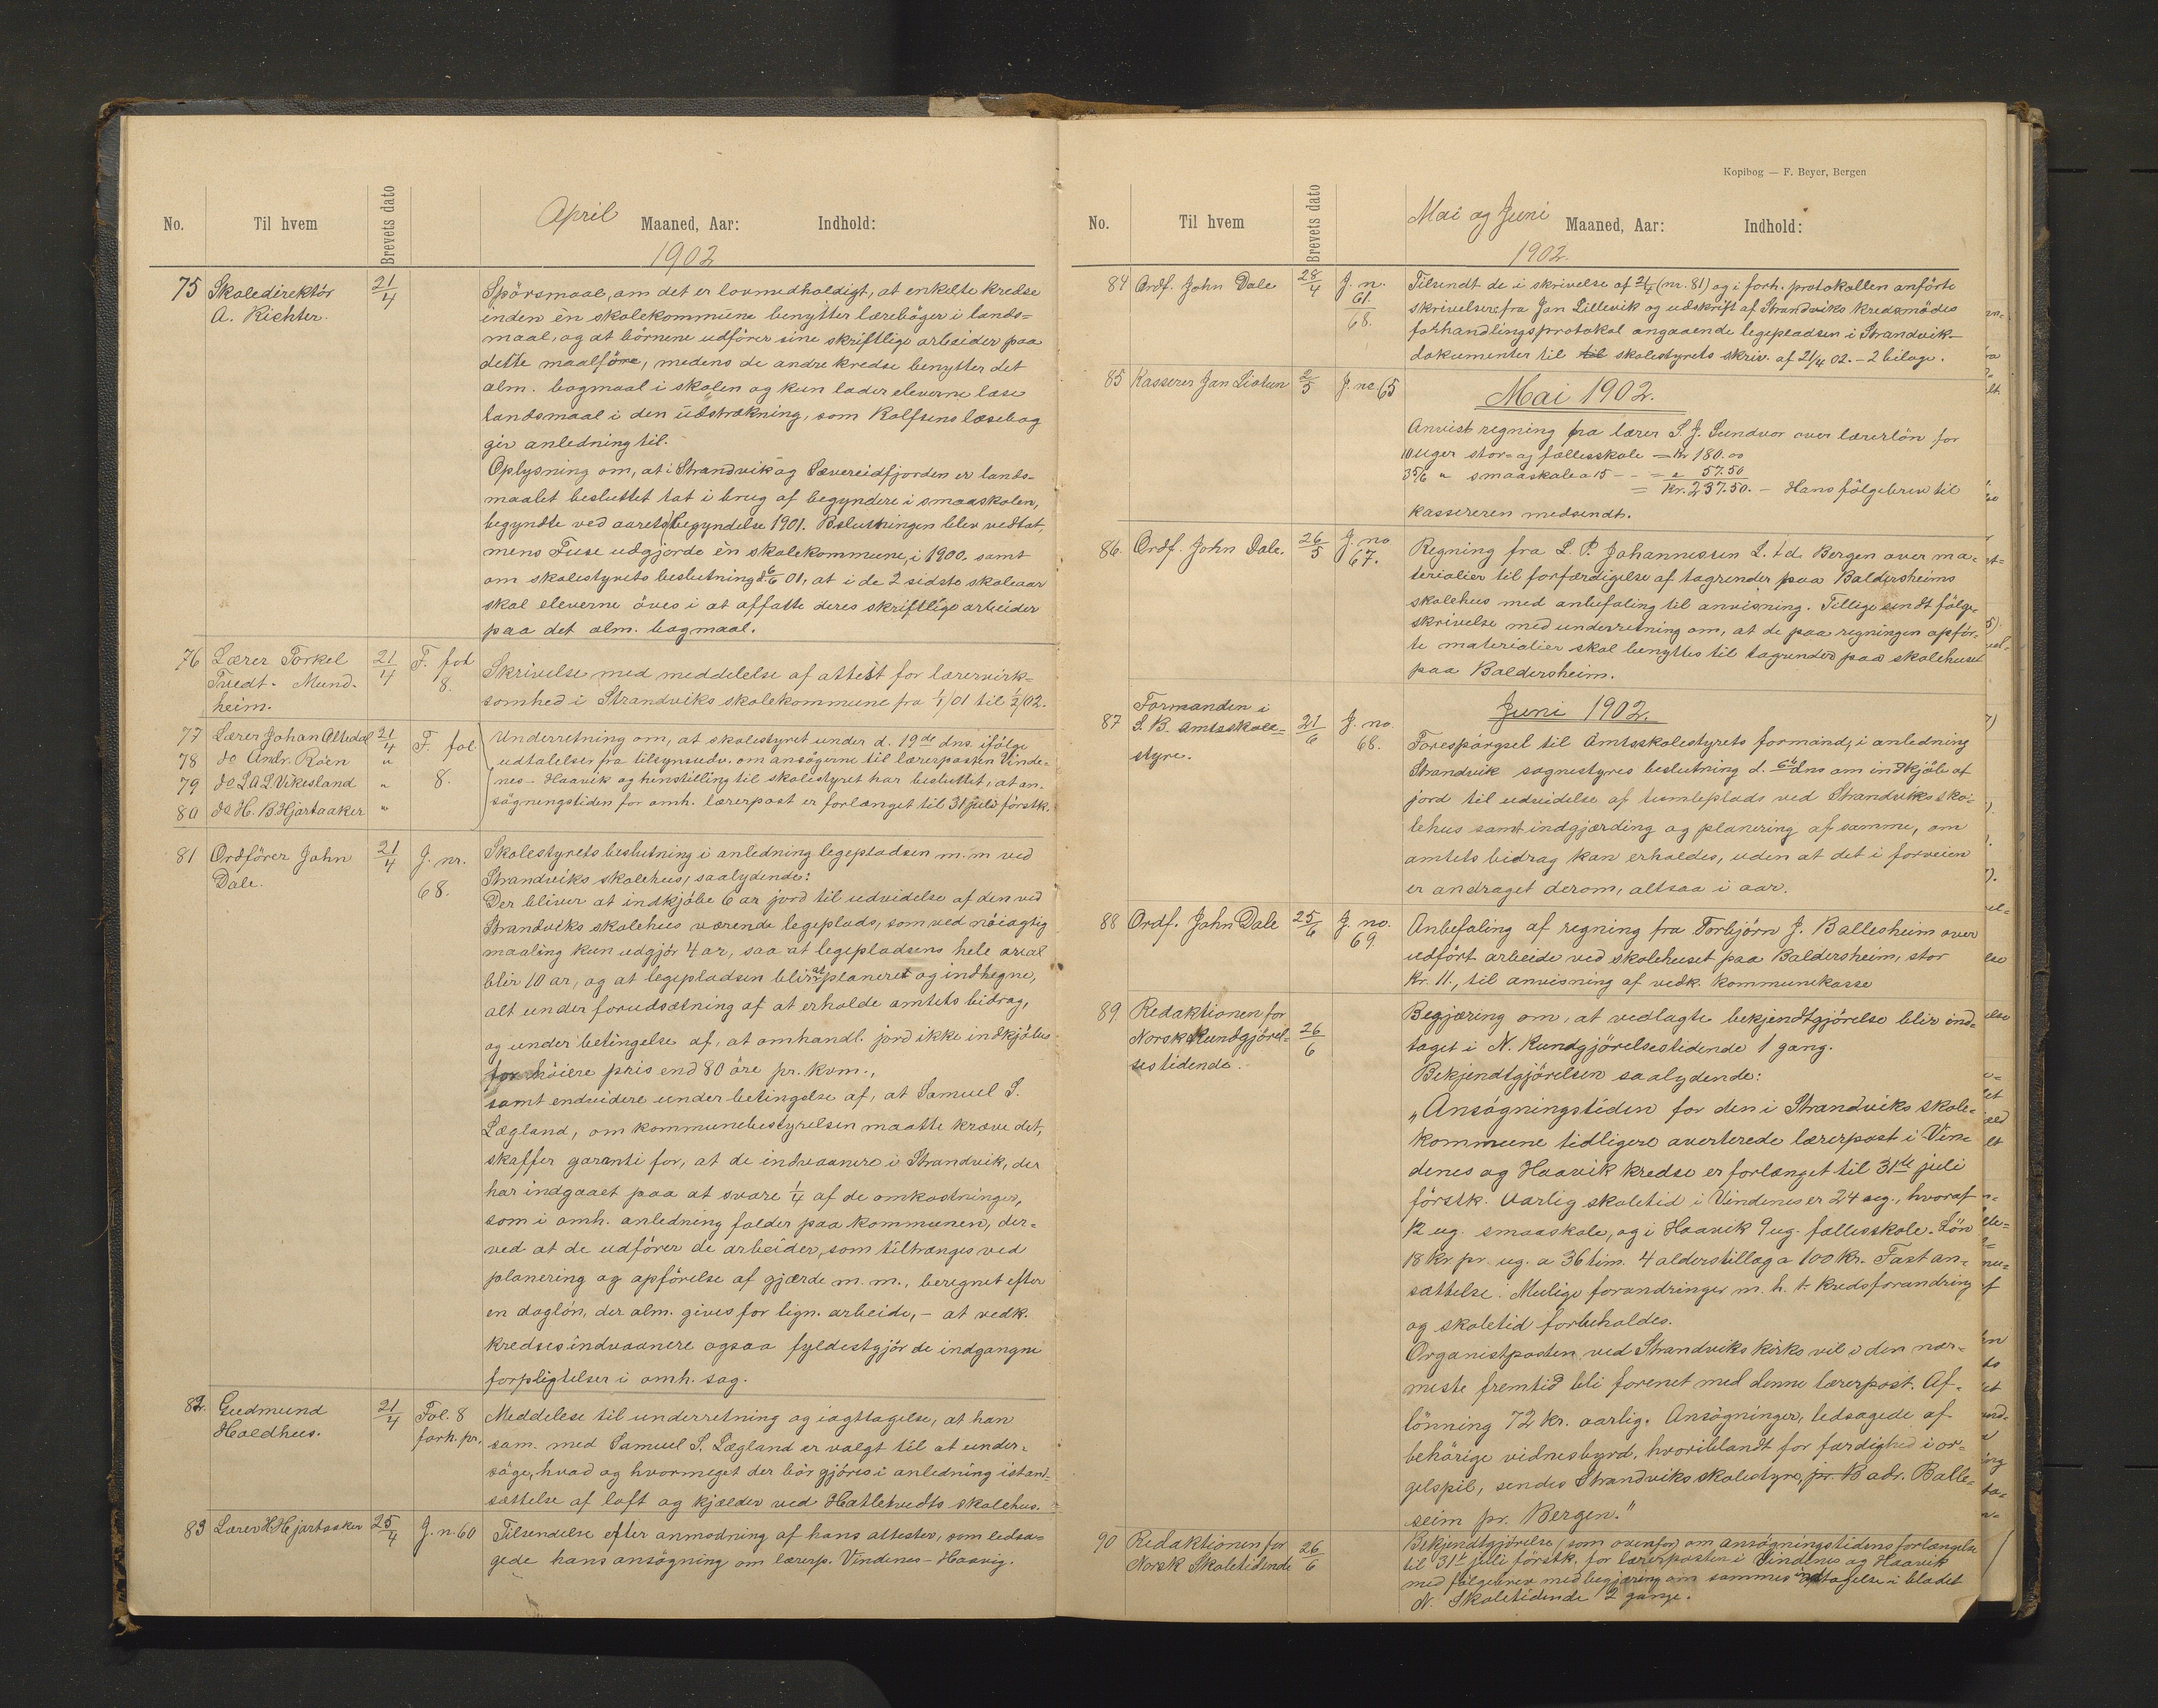 No. Til hvem Brevets dato April Maaned, Aar: Indhold:
1902
75 Skoledirektör 21/4 Spörsmaal, om det er lovmedholdigt, at enkelte kredse
A. Richter. inden èn skolekommune benytter læreböger i lands-
maal, og at börnene udförer sine skriftlige arbeider paa
dette maalföre, medens de andre kredse benytter det
alm. bogmaal i skolen og kun lader eleverne læse
landsmaal i den udstrækning, som Rolfsens læsebog
gir anledning til.
Oplysning om, at i Strandvik og Sævereidfjorden er lands-
maalet besluttet tat i brug af begyndere i smaaskolen,
begyndte ved aarets begyndelse 1901. Beslutningen blev vedtat,
mens Fuse udgjorde èn skolekommune, i 1900. samt
om skolestyrets beslutning d. 6/6 01, at i de 2 sidste skoleaar
skal eleverne öves i at affatte deres skriftlige arbeider
paa det alm. bogmaal.
76 Lærer Torkel 21/4 F. fol 8. Skrivelse med meddelelse af attest for lærervirk-
Tvedt. Mund- somhed i Strandviks skolekommune fra 1/1 01 til 1/2 02.
heim.
77 Lærer Johan Altedal 21/4 F. fol. 8. Underretning om, at skolestyret under d. 19de dns. ifölge
78 do Andr. Roen " udtalelser fra tilsynsudv. om ansögerne til lærerposten Vinde-
79 do L A L Vikesland " nes - Haavik og hinstilling til skolestyret har besluttet, at an-
80 do H. B. Hjartaaker " sögningstiden for omh. lærerpost er forlænget til 31 juli förstk.
81 Ordförer John 21/4 J. nr. 68. Skolestyrets beslutning i anledning legepladsen m.m ved
Dale. Strandviks skolehus, saalydende:
Der bliver at indkjöbe 6 ar jord til udvidelse af den ved
Strandviks skolehus værende legeplads, som ved nöiagtig
maaling kun udgjör 4 ar, saa at legepladsens hele areal
blir 10 ar, og at legepladsen blir at planere og indhegne,
alt under forudsætning af at erholde amtets bidrag,
og under betingelse af, at omhandl. jord ikke indkjöbes
for höiere pris end 80 öre pr. kvm.,
samt endvidere under betingelse af, at Samuel S.
Lægland, om kommunebestyrelsen maatte kræve det,
skaffer garanti for, at de indvaanere i Strandvik, der
har indgaaet paa at svare 1/4 af de omkostninger,
som i omh. anledning falder paa kommunen, der-
ved at de udförer de arbeider, som tiltrænges ved
planering og opförelse af gjærde m. m., beregnet efter
en daglön, der alm. gives for lign. arbeide, - at vedk.
kredses indvaanere ogsaa fyldestgjör de indgangne
forpligtelser i omh. sag.
82. Gudmund 21/4 Fol. 8 Meddelelse til underretning og iagttagelse, at han
Holdhus. forh. pr. sam. med Samuel S. Lægland er valgt til at under-
söge, hvad og hvormeget der bör gjöres i anledning istand-
sættelse af loft og kjælder ved Hatletvedts skolehus.
83 Lærer H Hjartaaker 25/4 J. n. 60 Tilsendelse efter anmodning af hans attester, som ledsa-
gede hans ansögning om lærerp. Vindenes - Haavig.
Kopibog — F. Beyer, Bergen
No. Til hvem Brevets dato Mai og Juni Maaned, Aar: Indhold:
1902.
84 Ordf. John Dale 28/4 J. n. 61. 68. Tilsendt de i skrivelse af 21/4 (nr. 81) og i forh. protokollen anförte
skrivelser fra Jan Lillevik og udskrift af Strandviks kredsmödes
forhandlingsprotokol angaaende legepladsen i Strandvik -
dokumenter til til skolestyrets skriv. af 21/4 02. - 2 bilage.
85 Kasserer Jan Liatun 2/5 J. no 65 Mai 1902.
Anvist regning fra lærer S. J. Sundvor over lærerlön for
10 uger stor- og fællesskole = Kr 180.00
3 5/6 " smaaskole a 15 - - = " 57.50
= Kr. 237.50. - Hans fölgebrev til
kassereren medsendt.
86. Ordf. John Dale. 26/5 J. no 67. Regning fra L. P. Johannessen L.td. Bergen over ma-
terialier til forfærdigelse af tagrender paa Baldersheims
skolehus med anbefaling til anvisning. Tillige sendt fölge-
skrivelse med underretning om, at de paa regningen opför-
te materialier skal benyttes til tagrender paa skolehuset
paa Baldersheim.
Formanden i Juni 1902.
87 S. B. Amtsskole- 21/6 J. no. 68. Forespörgsel til Amtsskolestyrets formand, i anledning
styre. Strandvik sognestyres beslutning d. 6te dns om indkjöb af
jord til udvidelse af tumleplads ved Strandviks sko-
lehus samt indgjærding og planering af samme, om
amtets bidrag kan erholdes, uden at det i forveien
er andraget derom, altsaa i aar.
88 Ordf. John Dale 25/6 J. no. 69. Anbefaling af regning fra Torbjörn J. Ballesheim over
udfört arbeide ved skolehuset paa Baldersheim, stor
Kr. 11., til anvisning af vedk. kommunekasse
89. Redaktionen for 26/6 Begjæring om, at vedlagte bekjendtgjörelse blir ind-
Norsk Kundgjörel- taget i N. Kundgjörelsestidende 1 gang.
sestidende. Bekjendtgjörelsen saalydende:
„Ansögningstiden for den i Strandviks skole-
kommune tidligere averterede lærerpost i Vin-
denes og Haavik kredse er forlænget til 31te juli
förstk. Aarlig skoletid i Vindenes er 24 ug., hvoraf
12 ug. smaaskole, og i Haavik 9 ug. fællesskole. Lön
18 kr pr. ug. a 36 tim. 4 alderstillæg a 100 kr. Fast an-
sættelse. Mulige forandringer m. h. t. kredsforandring
og skoletid forbeholdes.
Organistposten ved Strandviks kirke vil i den nær-
meste fremtid bli forenet med denne lærerpost. Af-
lönning 72 kr. aarlig. Ansögninger, ledsagede af
behörige vidnesbyrd, hvoriblandt for færdighed i or-
gelspil, sendes Strandviks skolestyre, pr. B adr. Balle-
seim pr. Bergen."
90 Redaktionen for 26/6 Bekjendtgjörelse (som ovenfor) om ansögningstidens forlængelse
Norsk Skoletidende til 31te juli förstk. for lærerposten i Vindenes og Haavik
med fölgebrev med begjæring om sammes indtagelse i bladet
N. Skoletidende 2 gange.